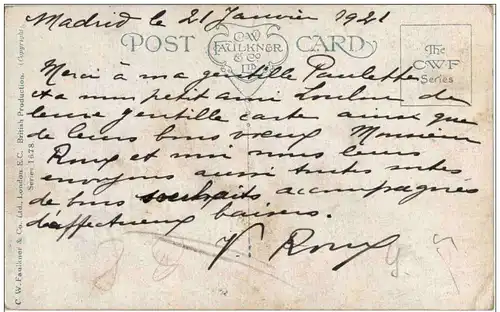 Madrid le 21 Janvier 1921
POST CARD
C.W.
FAULKNER
& Co
LTD
The
C.W.F
Series
Merci à ma gentille Paulette
et a mon petit ami Loulou de
leur gentille carte ainsi que
de leurs bons vœux Monsieur
Roux et moi nous leurs
envoyons aussi toutes sortes
de bons souhaits accompagnés
d'affectueux baisers.
V. Roux
C. W. Faulkner & Co. Ltd., London. E.C. British Production. (Copyright).
Series 1678